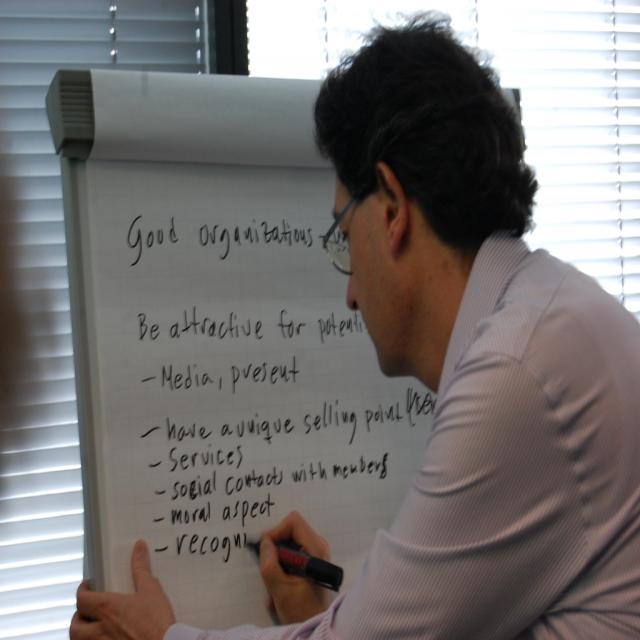 Good organizations
Be attractive for potenti
- Media, present
- have a unique selling point
- Services
- social contacts with members
- moral aspect
- recogni